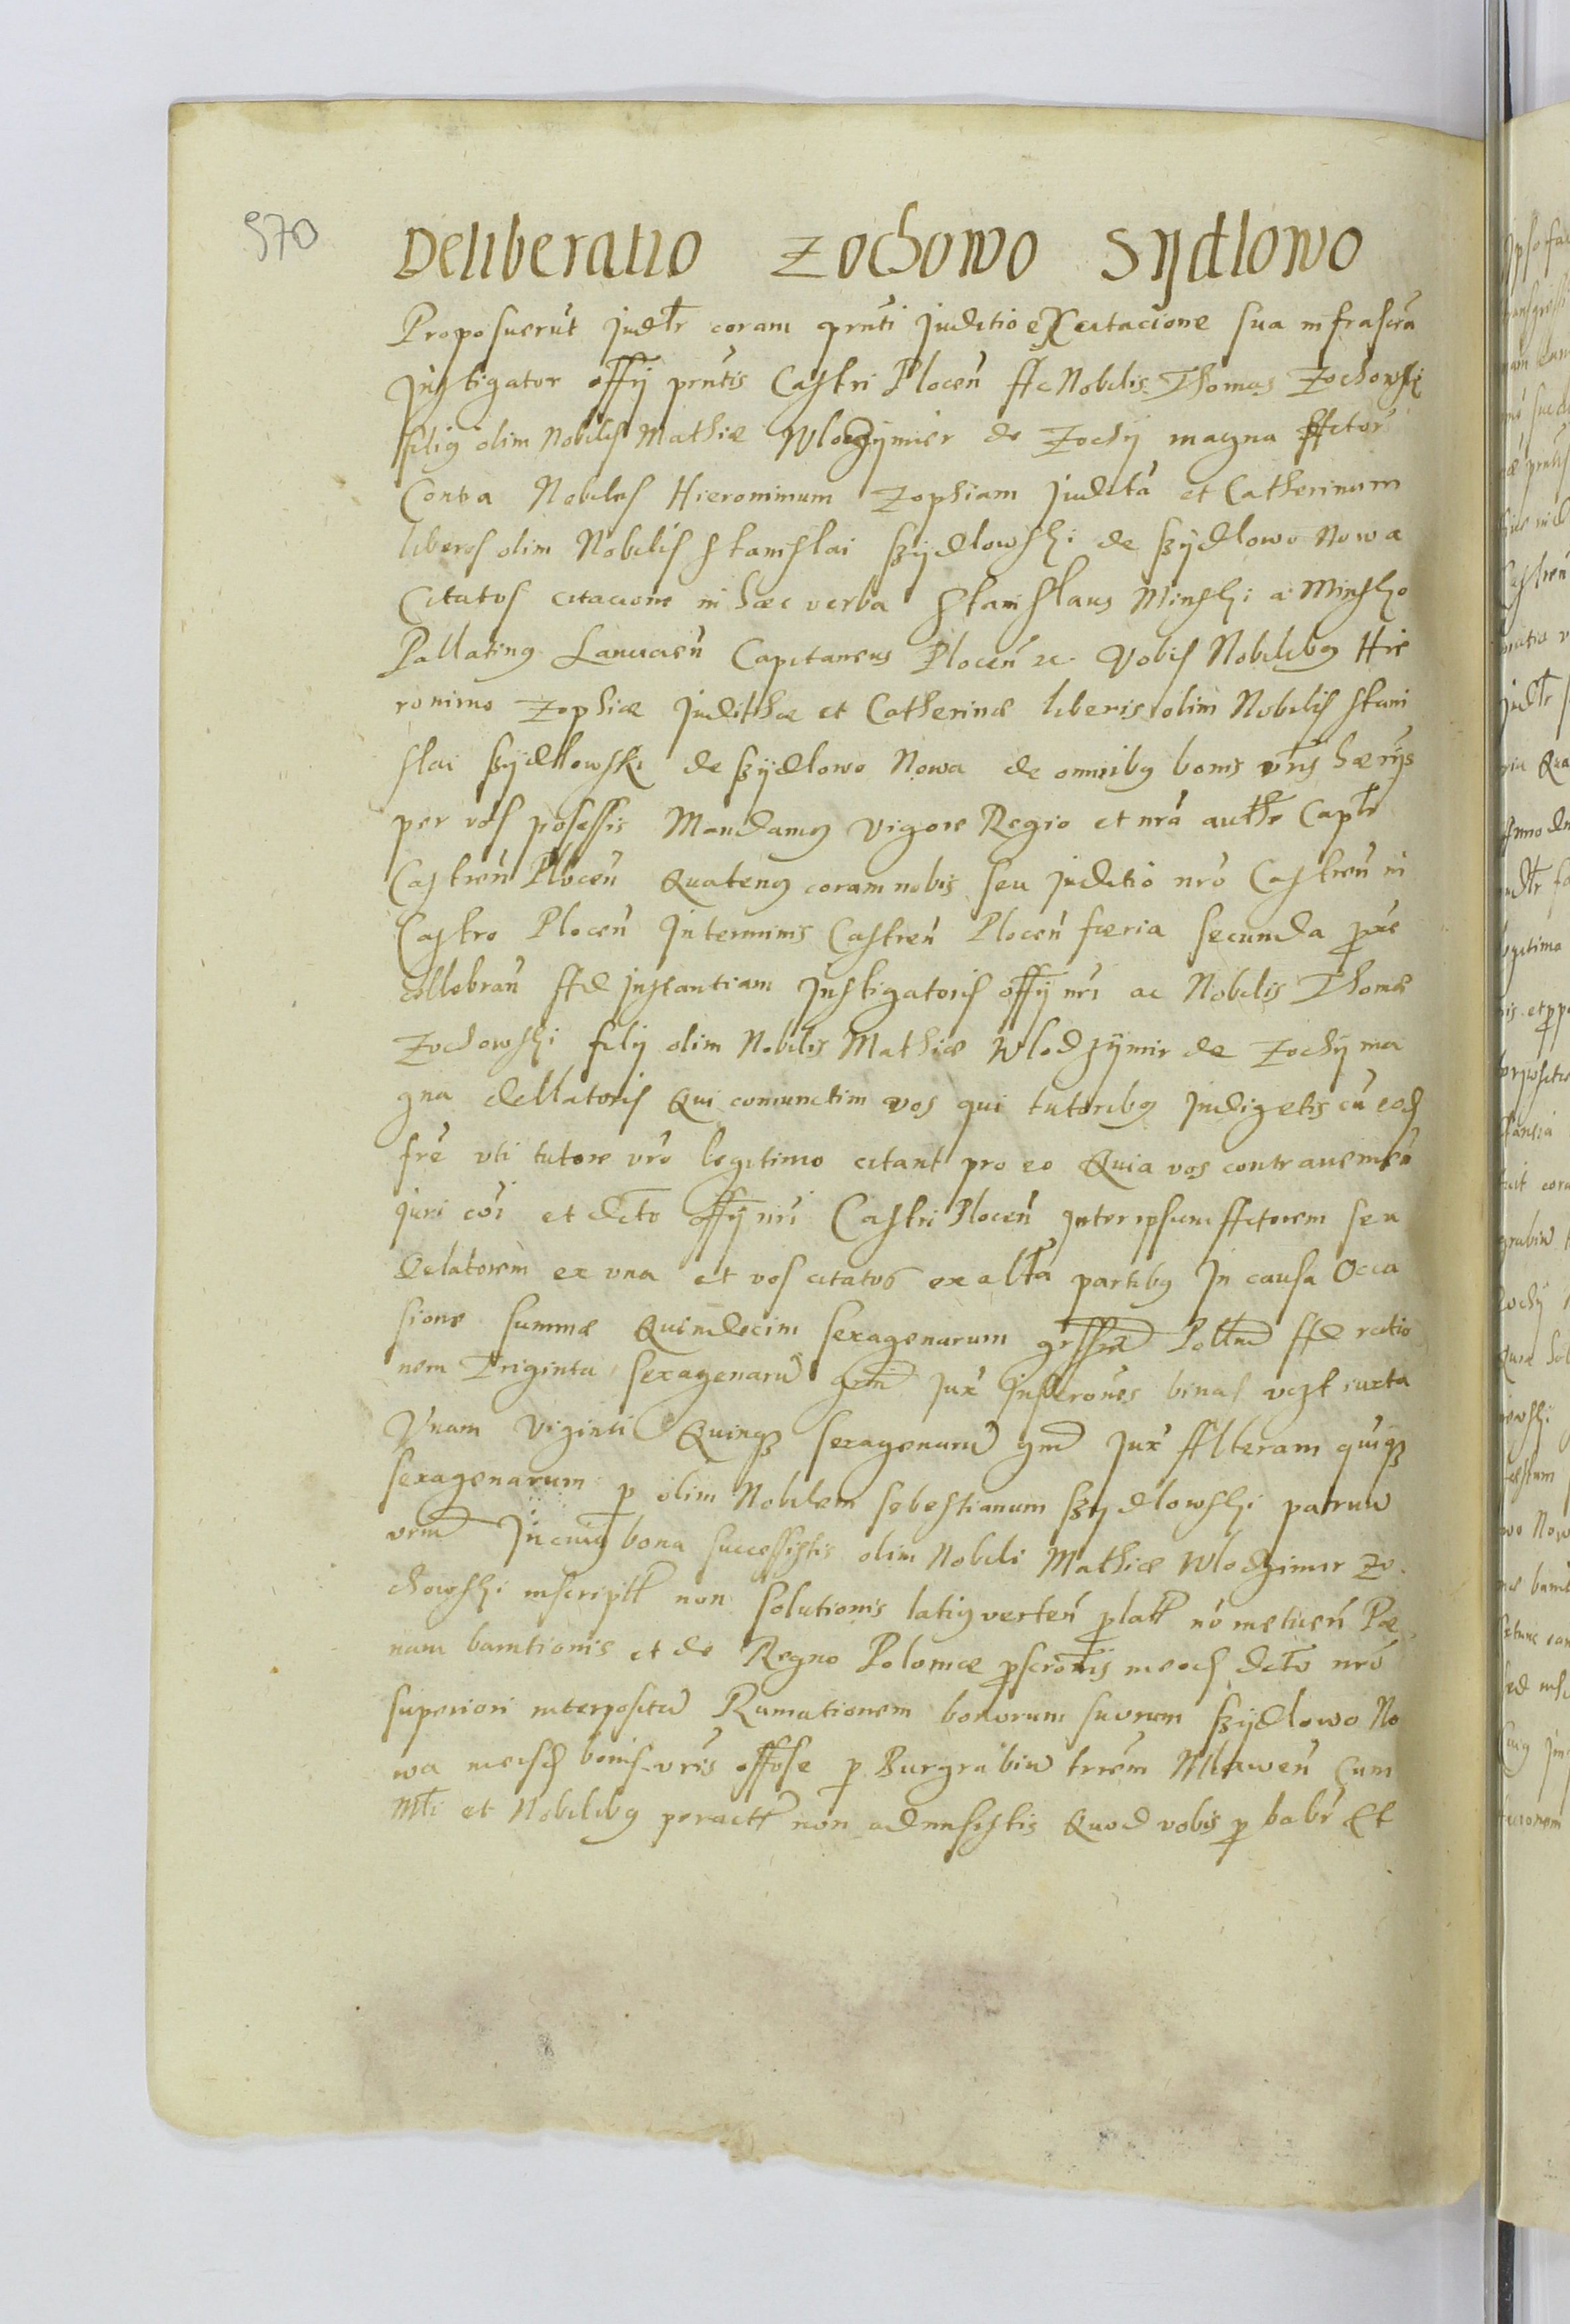 970
Deliberatio Zochowo Sydlowo
Proposuerūt judłr coram prn̄ti juditio ex citacione sua infrascrā
Instigator offÿ prn̄tis Castri Plocen̄ Ac Nobilis Thomas Zochowski
filiꝰ olim Nobilis Mathiæ Wlodzÿmier de Zochÿ magna Actor
Contra Nobiles Hieronimum Zophiam Juditā et Catherinam
liberos olim Nobilis Stanislai Szÿdlowski de Szÿdlowo Nowa
Citatos citacione in hæc verba Stanislaus Minski a Minsko
Pallatinꝰ Lanciciēn Capitaneus Plocen̄ ꝛc. Vobis Nobilibꝰ Hie
ronimo Zophiæ Judithæ et Catherinæ liberis olim Nobilis Stani
slai Szÿdlowski de Szÿdlowo Nowa de omnibꝰ bonis vr̄is hærÿs
per vos posessis Mandamꝰ vigore Regio et nrā autħe Capłe
Castren̄ Plocen̄ Quatenꝰ coram nobis seu juditio nrō Castren̄ in
Castro Plocen̄ In terminis Castren̄ Plocen̄ færia secunda ꝓxe
cellebran̄ Ad instantiam Instigatoris offÿ nrī ac Nobilis Thomæ
Zochowski filÿ olim Nobilis Mathiæ Wlodzÿmir de Zochÿ ma
gna dellatoris Qui coniunctim vos qui tutoribꝰ Indigetis cū eod
frē vti tutore vrō legitimo citant pro eo Quia vos contraueniēn
juri cōi et dcto offÿ nrī Castri Plocen̄ Inter ipsum Actorem seu
delatorem ex vna et vos citatos ex altā partibꝰ In causa Occa
sione summæ Quindecim sexagenarum grossor̄ Pollm̄ Ad ratio
nem Triginta sexagenarū grm̄ juxͭ Inscrōnes binas vczt iuxta
Vnam Viginti Quinqꝫ sexagenarū grm̄ juxͭ Alteram quīqꝫ
sexagenarum ꝑ olim Nobilem Sebestianum Szÿdlowski patruū
vrm̄ In cuiꝰ bona successistis olim Nobili Mathiæ Wlodzimir Zo
chowski inscriptæ non solutionis latiꝰ verten̄ ꝓlatt nō metuen̄ Pœ
nam banitionis et de Regno Poloniæ ꝓscrōnis in eod dcto nrō
superiori interpositū Rumationem bonorum suorum Szÿdlowo No
wa in eisd bonis vrīs offose ꝑ Burgrabiū terrēm Mlawen̄ Cum
Młi et Nobilibꝰ peractt non admisistis Quod vobis ꝓbabr̄ Et